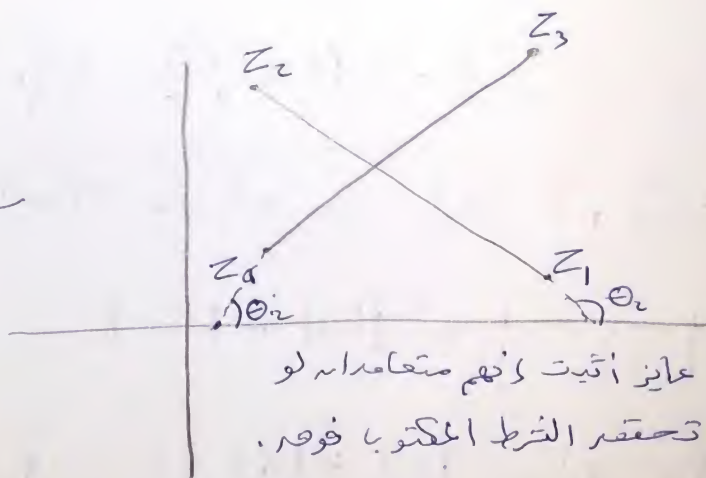 Z₂
Z₃
Z₄
Z₁
Θ₂
عايز أثبت إنهم متعامدان لو
تحقق الشرط المكتوب فوق.